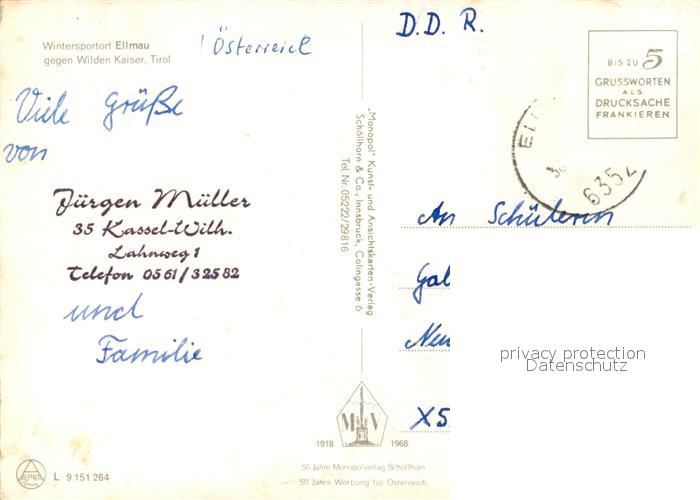 Wintersportort Ellmau
gegen Wilden Kaiser, Tirol
Österreich
D. D. R.
BIS ZU 5
GRUSSWORTEN
ALS
DRUCKSACHE
FRANKIEREN
6352
Viele Grüße
von
Jürgen Müller
35 Kassel-Wilh.
Lahnweg 1
Telefon 0561/32582
und
Familie
„Monopol" Kunst- und Ansichtskarten-Verlag
Schöllhorn & Co., Innsbruck, Colingasse 6
Tel. Nr. 05222/29816
An Schülerin
Gal
Neu
X5
privacy protection
Datenschutz
M V
1918 1968
50 Jahre Monopolverlag Schöllhorn
50 Jahre Werbung für Österreich
ALPINA
L 9 151 264